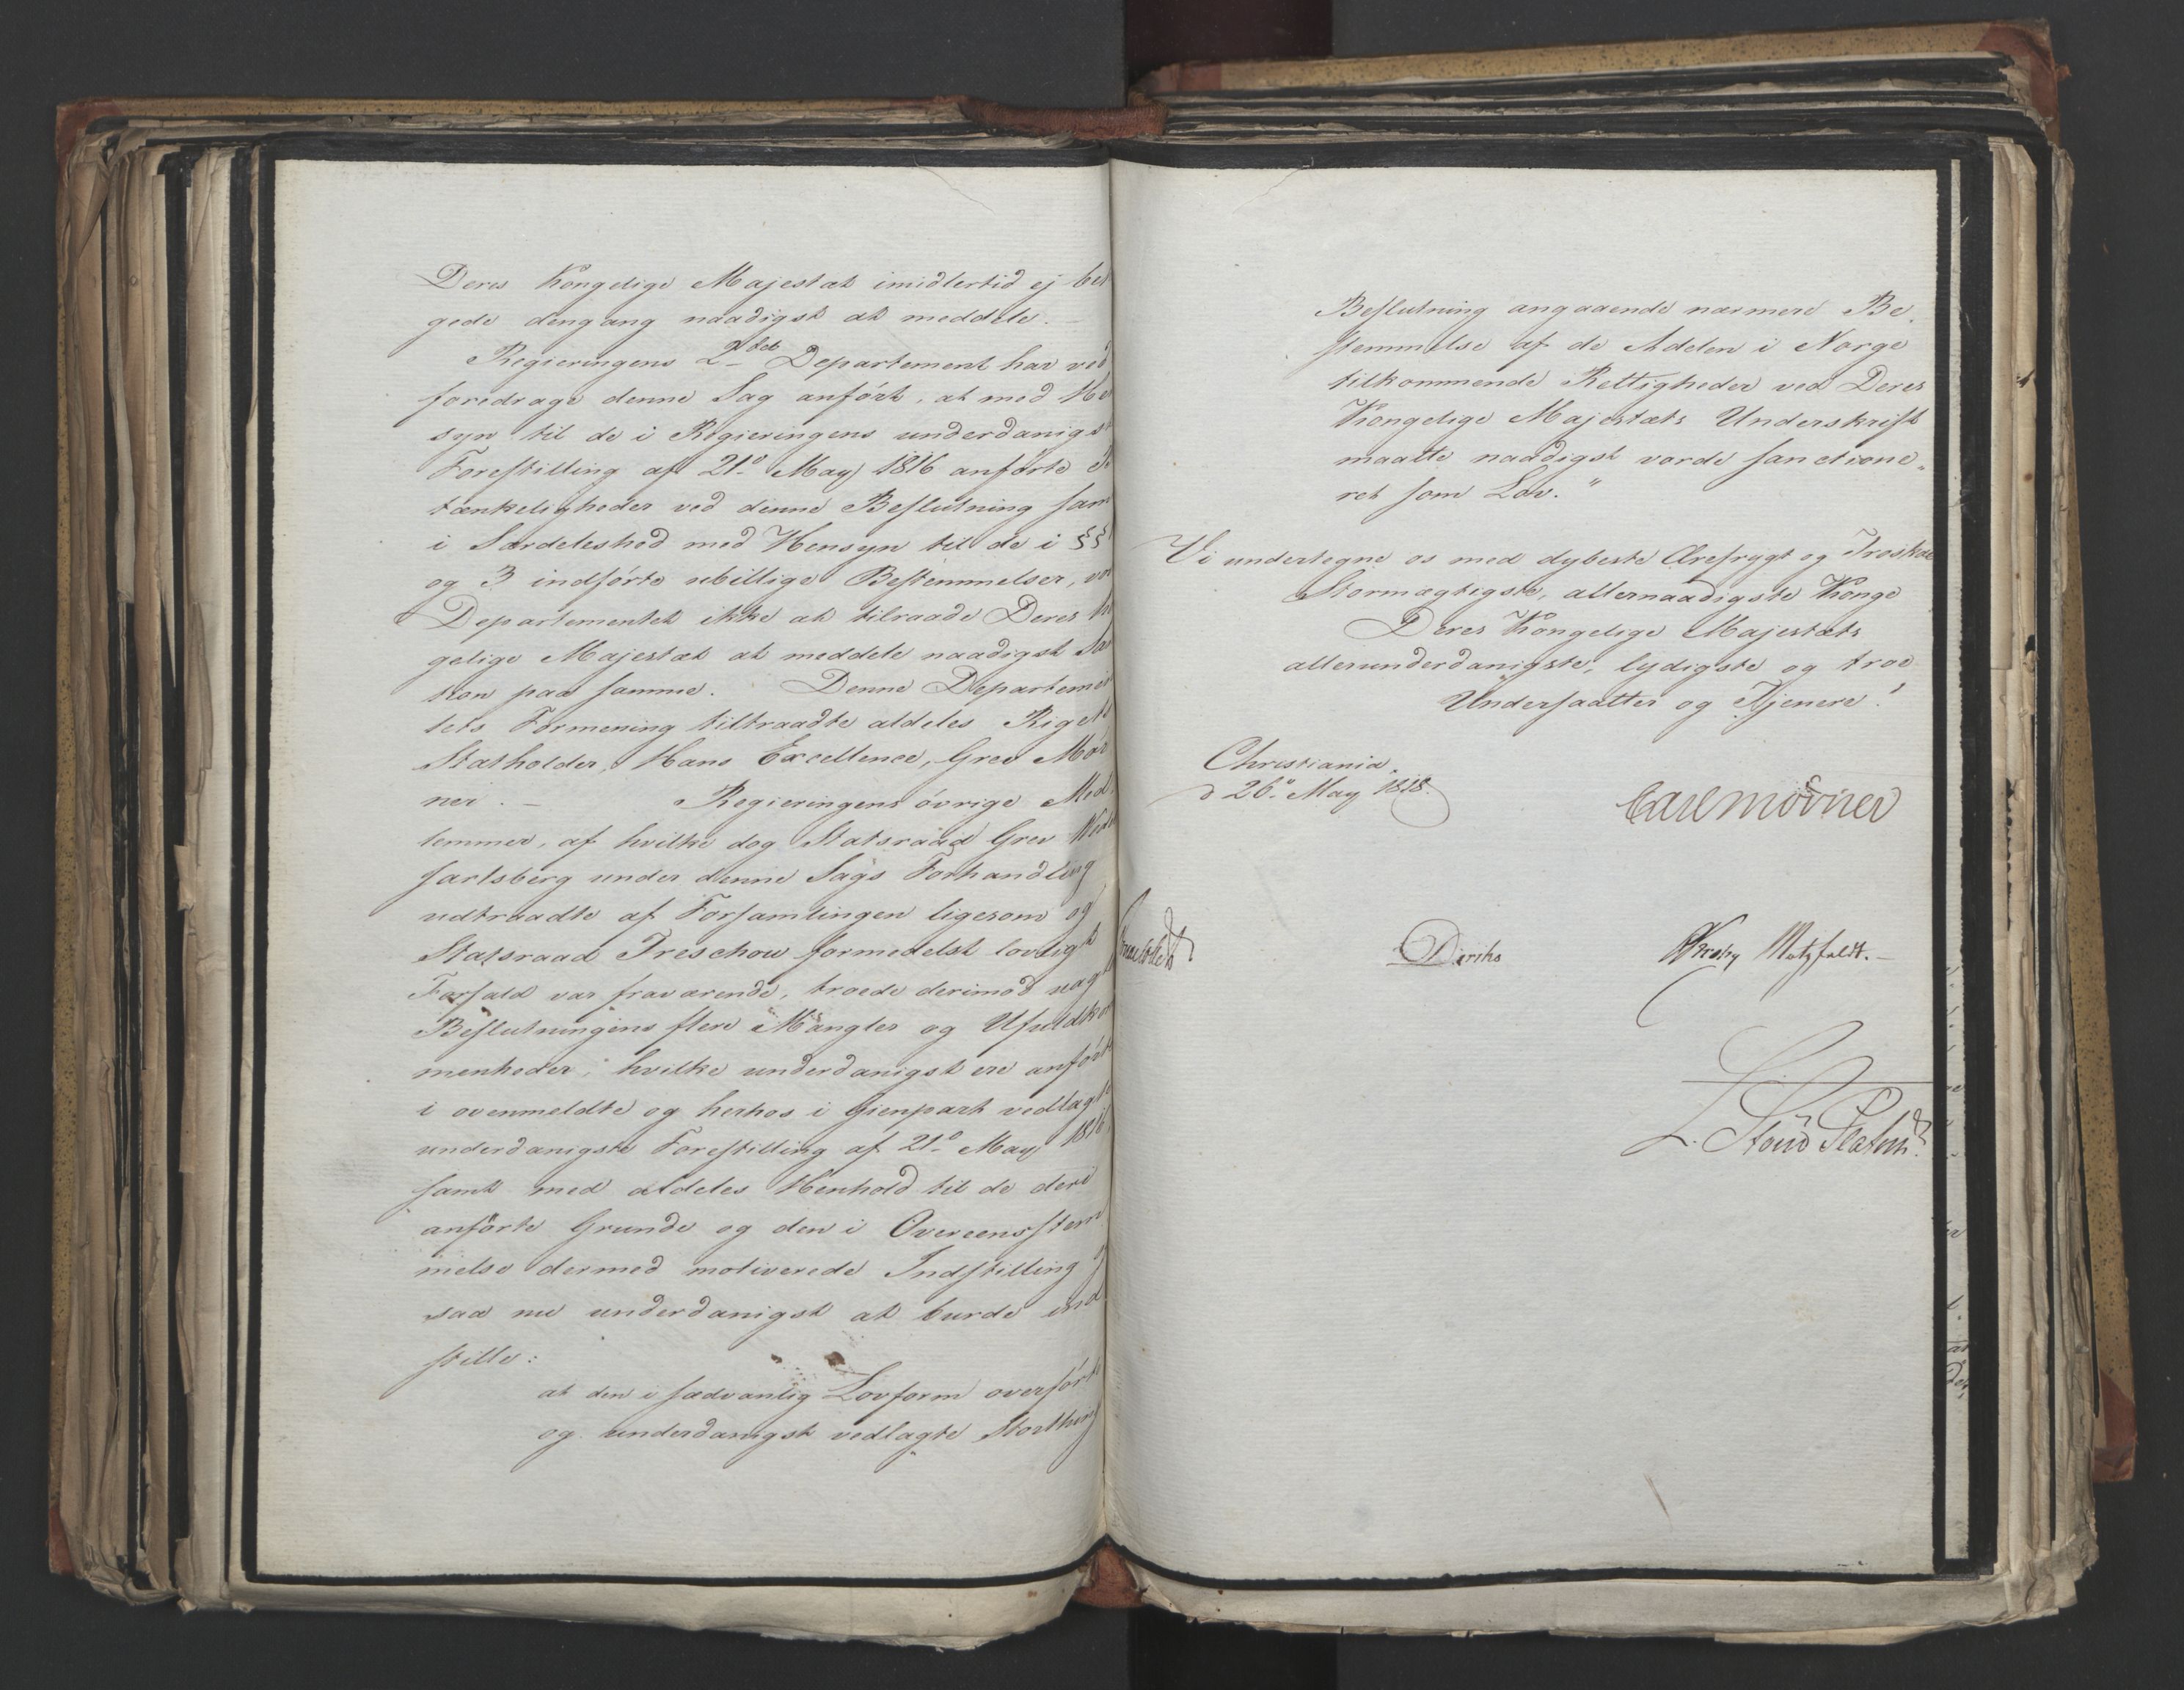 Deres Kongelige Majestæt imidlertid ej be
gede dengang naadigst at meddele.
Regieringens 2det Departement har ved
foredrage denne Sag anført, at med He
syn til de i Regieringens underdanigst
Forestilling af 21de May 1816 anførte
tænkeligheder ved denne Beslutning sam
i Særdeleshed med Hensyn til de i §§
og 3 indførte ubillige Bestemmelser, vo
Departementet ikke at tilraade Deres
gelige Majestæt at meddele naadigst Sa
tion paa samme. Denne Departemen
tets Formening tiltraadte aldeles Rigets
Statholder, Hans Excellence, Grev Mör
ner. — Regieringens övrige Med
lemmer, af hvilke dog Statsraad Grev Wede
Jarlsberg under denne Sags Forhandling
udtraadte af Forsamlingen ligesom og
Statsraad Treschow formedelst lovligt
Forfald var fraværende, troede derimod uagt
Beslutningens flere Mangler og Ufuldko
menheder, hvilke underdanigst ere anført
i ovenmeldte og herhos i Gienpart vedlagte
underdanigste Forestilling af 21de May 1816,
samt med aldeles Henhold til de deri
anførte Grunde og den i Overeensstem
melse dermed motiverede Indstilling
saa nu underdanigst at burde ind
stille:
at den i sædvanlig Lovform overførte
og underdanigst vedlagte Storthing
Beslutning angaaende nærmere Be
stemmelse af de Adelen i Norge
tilkommende Rettigheder ved Deres
Kongelige Majestæts Underskrift
maatte naadigst vorde sanctione„
ret som Lov."
Vi undertegne os med dybeste Ærefrygt og Troskab
Stormægtigste, allernaadigste Konge
Deres Kongelige Majestæts
allerunderdanigste, lydigste og troe
Undersaatter og Tjenere!
Christiania,
d 26de May 1818.
Carl Mörner
Diriks
Krohg Motzfeldt.
L. Stoud Platou